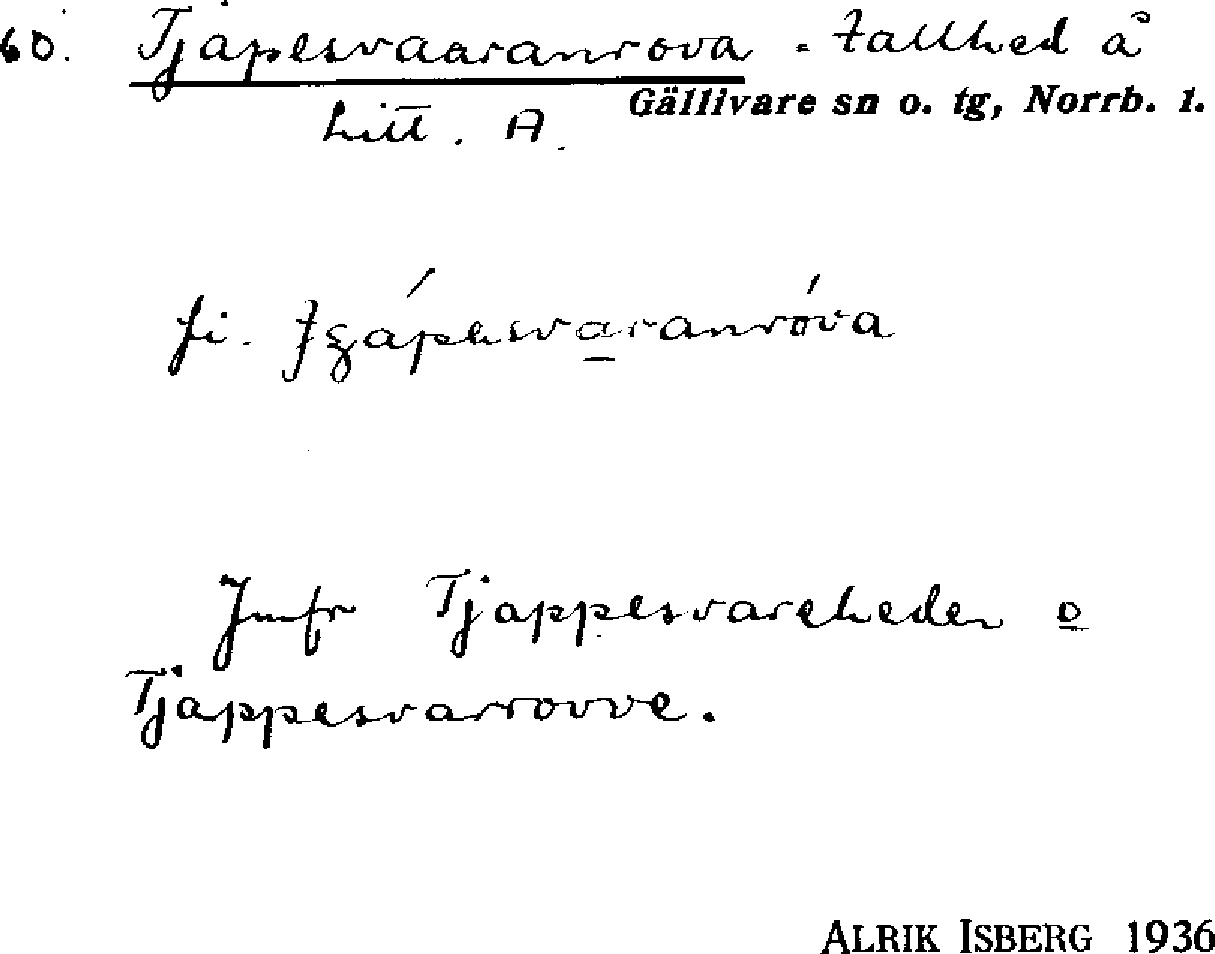 60. Tjåpesvaaranrova - tallhed å
Gällivare sn o. tg, Norrb. l.
litt. A.
fi.
Jmfr Tjappesvareheden o
Tjappesvarrovve.
ALRIK ISBERG 1936